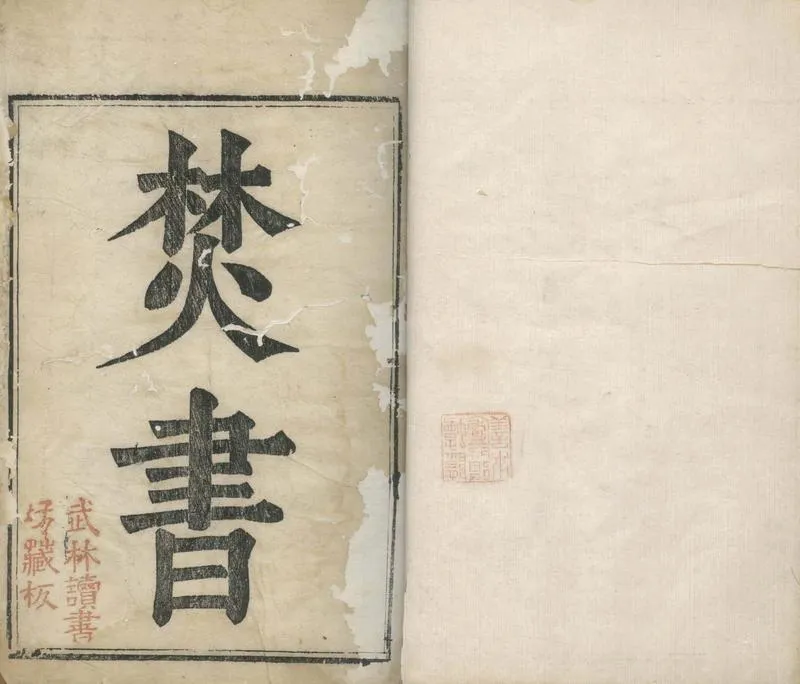 焚書
武林讀書
坊藏板